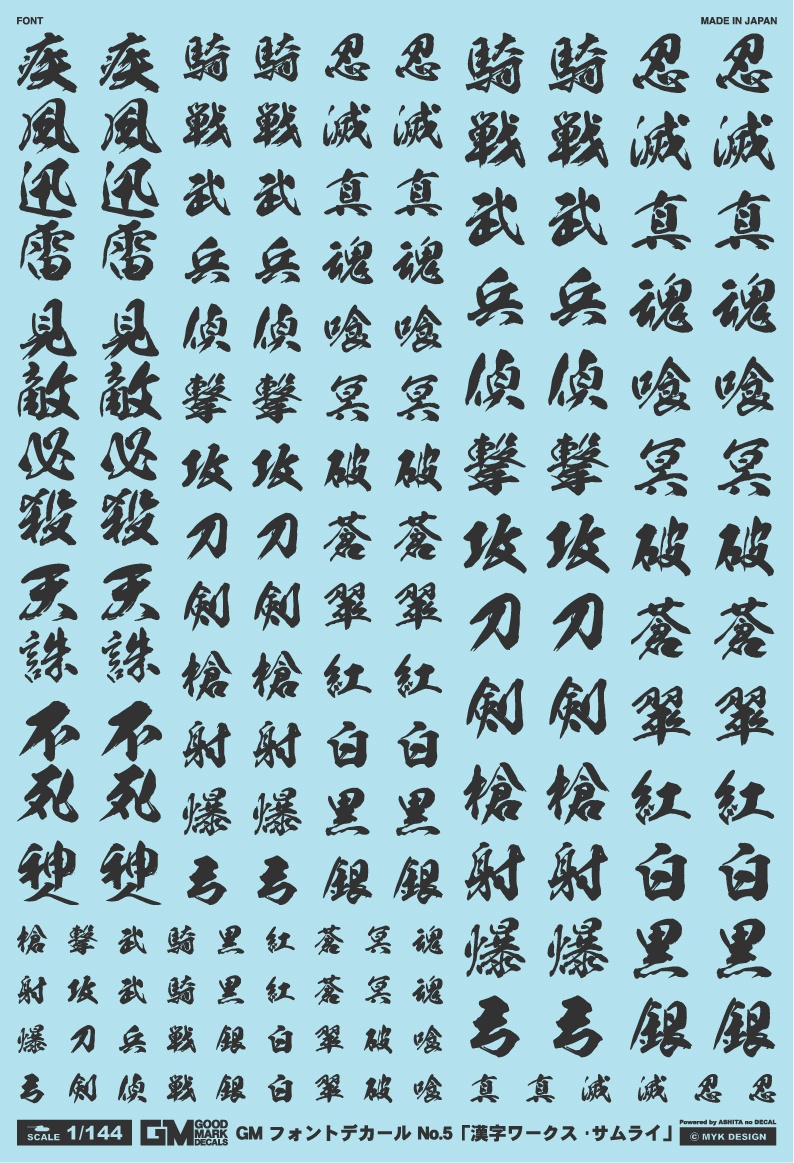 FONT
MADE IN JAPAN
疾風迅雷
疾風迅雷
見敵必殺
見敵必殺
天誅
天誅
不死
不死
騎 騎 忍 忍
戦 戦 滅 滅
武 武 真 真
兵 兵 魂 魂
偵 偵 喰 喰
撃 撃 冥 冥
攻 攻 破 破
刀 刀 蒼 蒼
剣 剣 翠 翠
槍 槍 紅 紅
射 射 白 白
爆 爆 黒 黒
弓 弓 銀 銀
騎 騎 忍 忍
戦 戦 滅 滅
武 武 真 真
兵 兵 魂 魂
偵 偵 喰 喰
撃 撃 冥 冥
攻 攻 破 破
刀 刀 蒼 蒼
剣 剣 翠 翠
槍 槍 紅 紅
射 射 白 白
爆 爆 黒 黒
弓 弓 銀 銀
槍 撃 武 騎 黒 紅 蒼 冥 魂
射 攻 武 騎 黒 紅 蒼 冥 魂
爆 刀 兵 戦 銀 白 翠 破 喰
弓 剣 偵 戦 銀 白 翠 破 喰 真 真 滅 滅 忍 忍
SCALE 1/144
GM GOOD MARK DECALS
GM フォントデカール No.5「漢字ワークス・サムライ」
Powered by ASHITA no DECAL
© MYK DESIGN